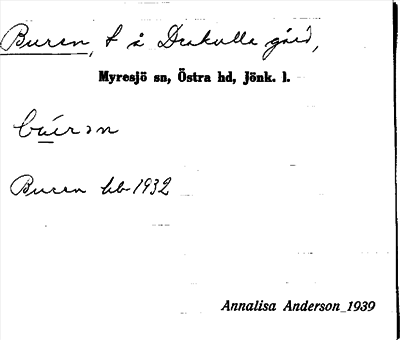 Buren, t å Drakulla gård,
Myresjö sn, Östra hd, Jönk. l.
bu̲´rən
Buren hb 1932
Annalisa Anderson 1939